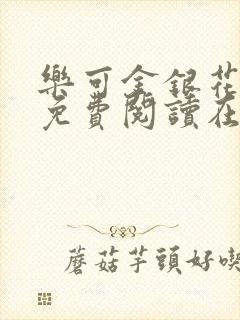 樂可金銀花
免費閱讀在
蘑菇芋頭好喫